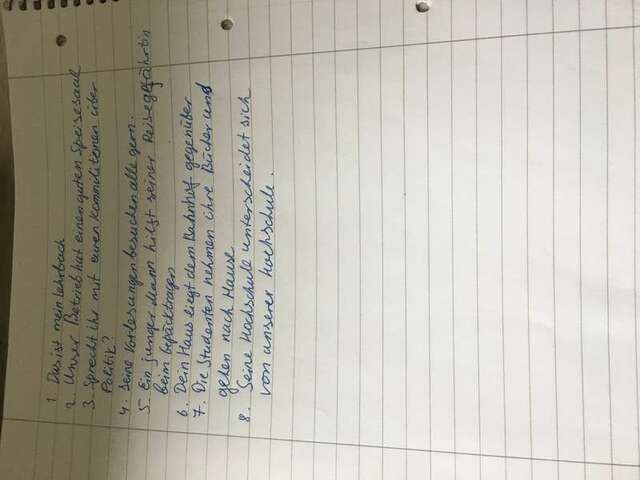 1. Das ist mein Lehrbuch
2. Unser Betrieb hat einen guten Speisesaal
3. Sprecht ihr mit euren Kommilitonen über
Politik?
4. Seine Vorlesungen besuchen alle gern.
5. Ein junger Mann hilft seiner Reisegefährtin
beim Gepäcktragen
6. Dein Haus liegt dem Bahnhof gegenüber
7. Die Studenten nehmen ihre Bücher und
gehen nach Hause
8. Seine Hochschule unterscheidet sich
von unserer Hochschule.